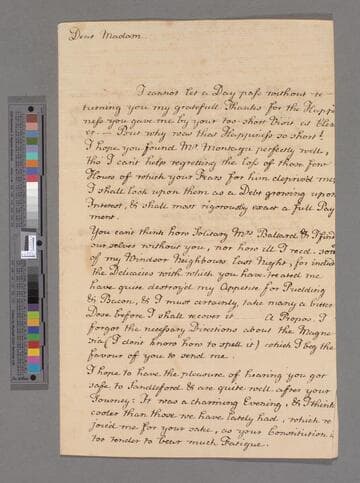 Dear Madam.
I cannot let a Day pass without re-
turning you my gratefull Thanks for the Happi
ness you gave me by your too short Visit at
But why was that Happiness so short!
I hope you found Mr Montagu perfectly well,
tho' I can't help regretting the loss of those few
Hours of which your Fears for him depriv'd me;
I shall look upon them as a Debt growing upon
Interest, & shall most rigorously exact a full Pay
ment.
You can't think how Solitary Mrs Ballard & I find
our selves without you, nor how ill I recd. some
of my Windsor Neighbours last Night, for indeed
the Delicacies with which you have treated me
have quite destroy'd my Appetite for Pudding
& Bacon, & I must certainly take many a bitter
Dose before I shall recover it — A Propos. I
forgot the necessary Directions about the Magne
sia (I dont know how to spell it) which I beg the
favour of you to send me.
I hope to have the pleasure of hearing you got
safe to Sandleford & are quite well after your
Journey: It was a charming Evening, & I think
cooler than those we have lately had, which re
joiced me for your sake, as your Constitution is
too tender to bear much Fatigue.